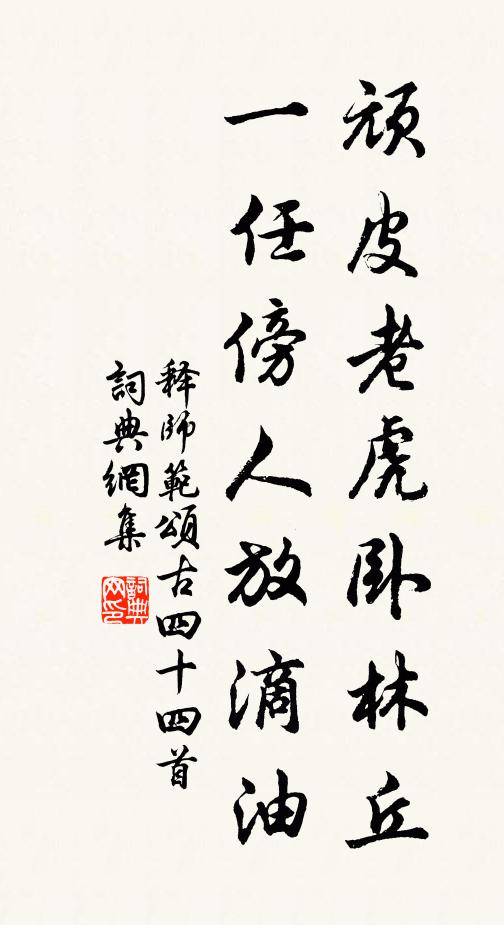 頑皮老虎卧林丘
一任傍人放滴油
释師範頌古四十四首
詞典網集
詞典網印